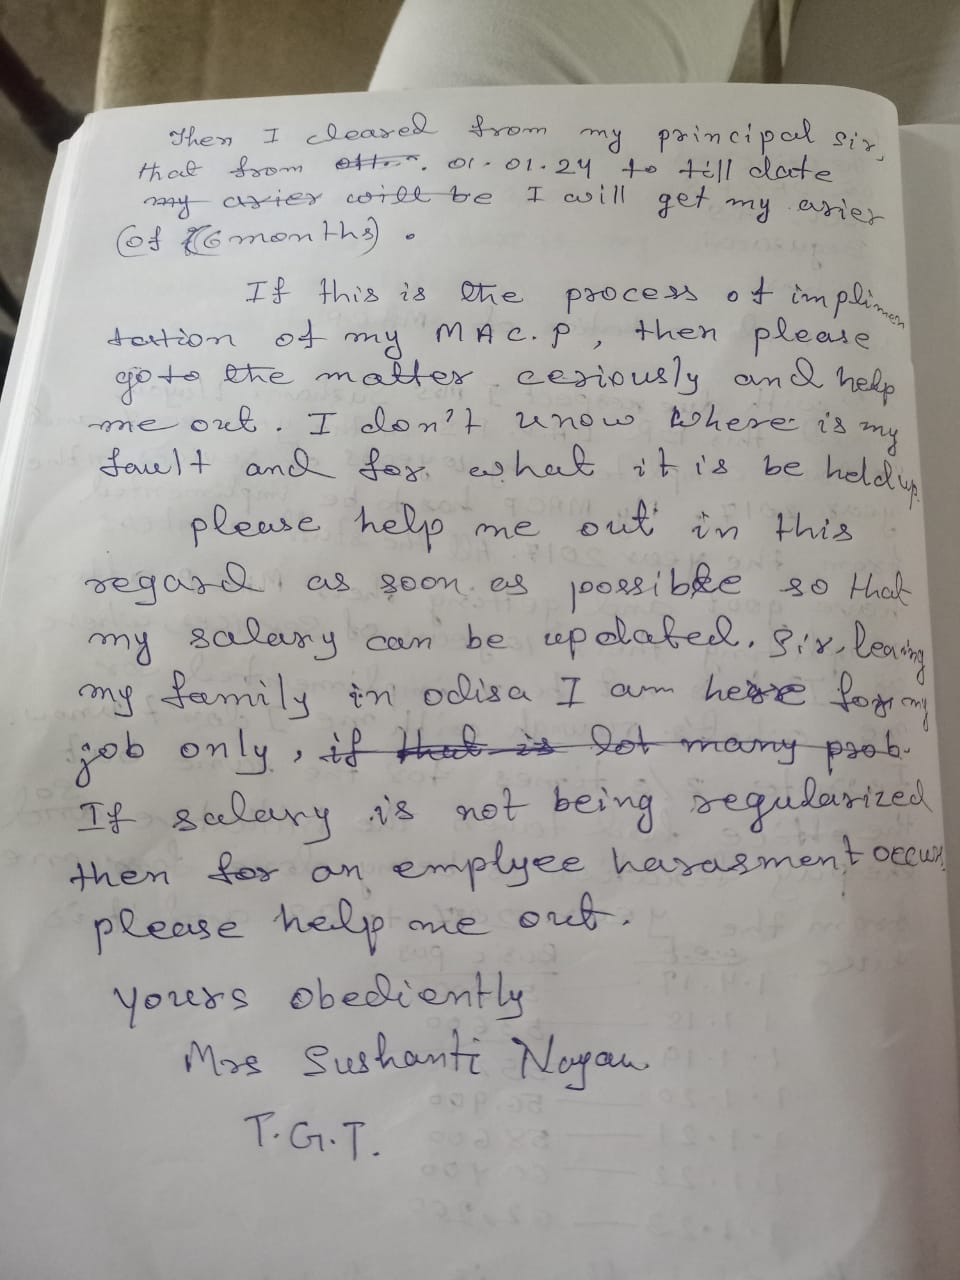 Then I cleared from my principal sir,
that from 01.01.24 to till date
my arier will be I will get my arier
(of 6 months).
If this is the process of implimen
tation of my MAC.P, then please
go to the matter ceriously and help
me out. I don't know where is my
fault and for what it is be held up.
please help me out in this
regard as soon as possible so that
my salary can be updated. Sir, leaving
my family in odisa I am here for my
job only, if that is lot many prob.
If salary is not being regularized
then for an emplyee harasment occurs.
please help me out.
Yours obediently
Mrs Sushanti Nayau
T.G.T.